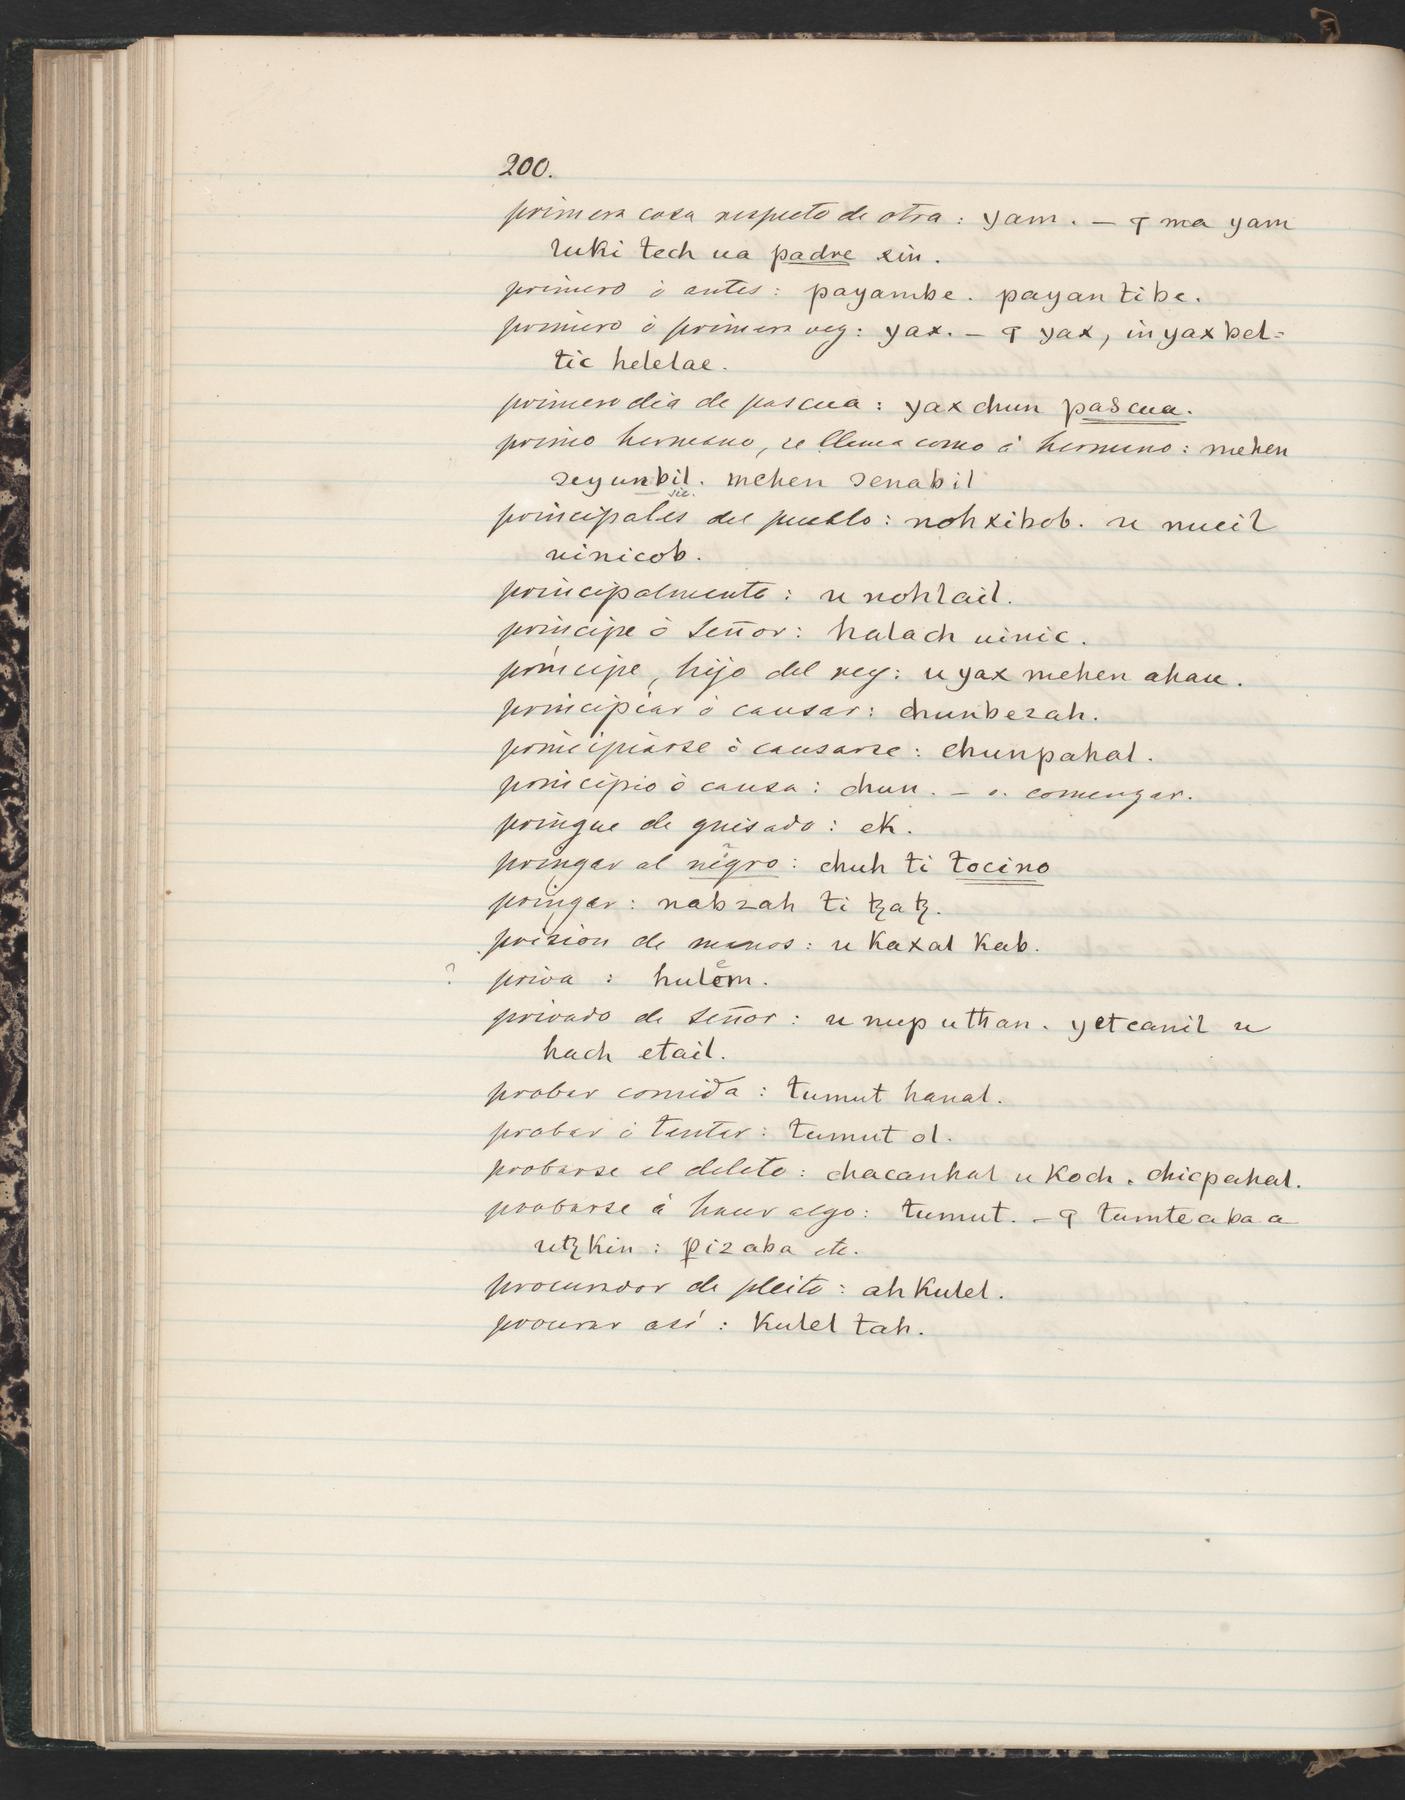 200.
primera cosa respecto de otra : yam. — ꟼ ma yam
zuki tech ua padre xin.
primero ò antes : payambe. payan tibe.
primero ò primera vez : yax. — ꟼ yax, in yax bel=
tic helelae.
primero dia de pascua : yax chun pascua.
primo hermano, se llama como á hermano : mehen
zuyunbil. mehen zenabil
sic.
principales del pueblo : nohxibob. u nucil
uinicob.
principalmente : u nohlail.
principe ò Señor : halach uinic.
principe, hijo del rey : u yax mehen ahau.
principiar ò causar : chunbezah.
principiarse ò causarse : chunpahal.
principio ò causa : chun. — v. comenzar.
pringue de guisado : ek.
pringar al nẽgro : chuh ti tocino
pringar : nabzah ti tzatz.
prision de manos : u kaxal kab.
? priva : hulem.
privado de Señor : u nup uthan. yetcanil u
hach etail.
probar comida : tumut hanal.
probar ò tentar : tumut ol.
probarse el delito : chacanhal u koch. chicpahal.
probarse á hacer algo : tumut. — ꟼ tumte aba a
utzkin : pizaba etc.
procurador de pleito : ah kulel.
procurar asi : kulel tah.